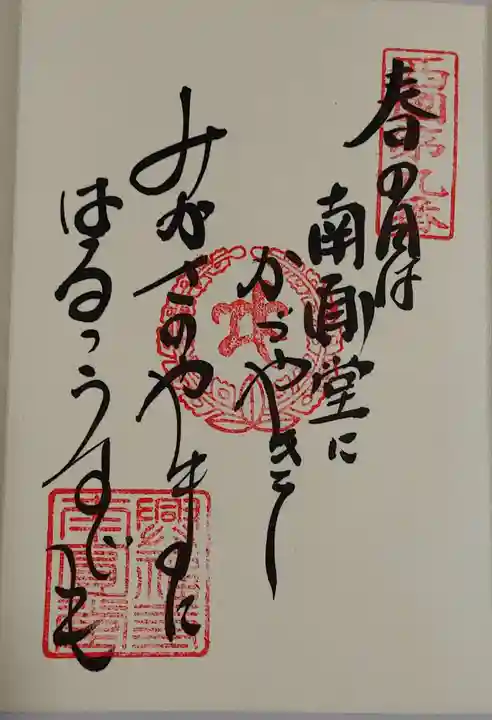 西國第九番
春の日は
南圓堂に
かゞやきて
みかさのやまに
はるゝうすぐも
興福寺
南圓堂